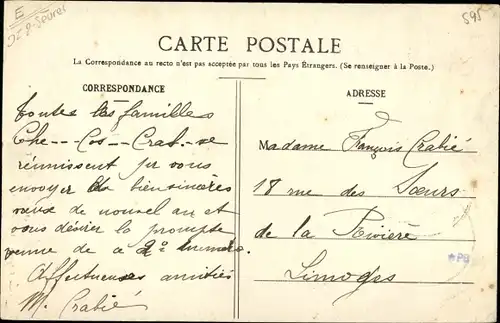 E
595
CARTE POSTALE
La Correspondance au recto n'est pas acceptée par tous les Pays Étrangers. (Se renseigner à la Poste.)
CORRESPONDANCE
Toutes les familles
Che-- Cos-- Crab-- se
réunissent pr vous
envoyer bien sincères
vœux de nouvel an et
vous désirer la prompte
venue de ce 2e
Affectueuses amitiés
M. Crabié
ADRESSE
Madame François Crabié
18 rue des Sœurs
de la Rivière
Limoges
*PB